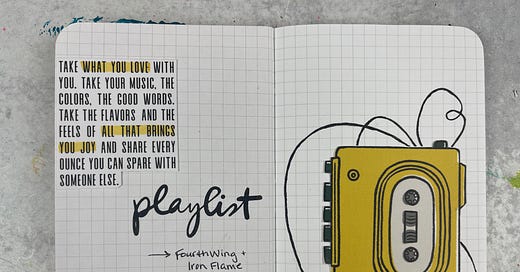 TAKE WHAT YOU LOVE WITH
YOU. TAKE YOUR MUSIC, THE
COLORS, THE GOOD WORDS.
TAKE THE FLAVORS AND THE
FEELS OF ALL THAT BRINGS
YOU JOY AND SHARE EVERY
OUNCE YOU CAN SPARE WITH
SOMEONE ELSE.
playlist
→ FourthWing +
Iron Flame